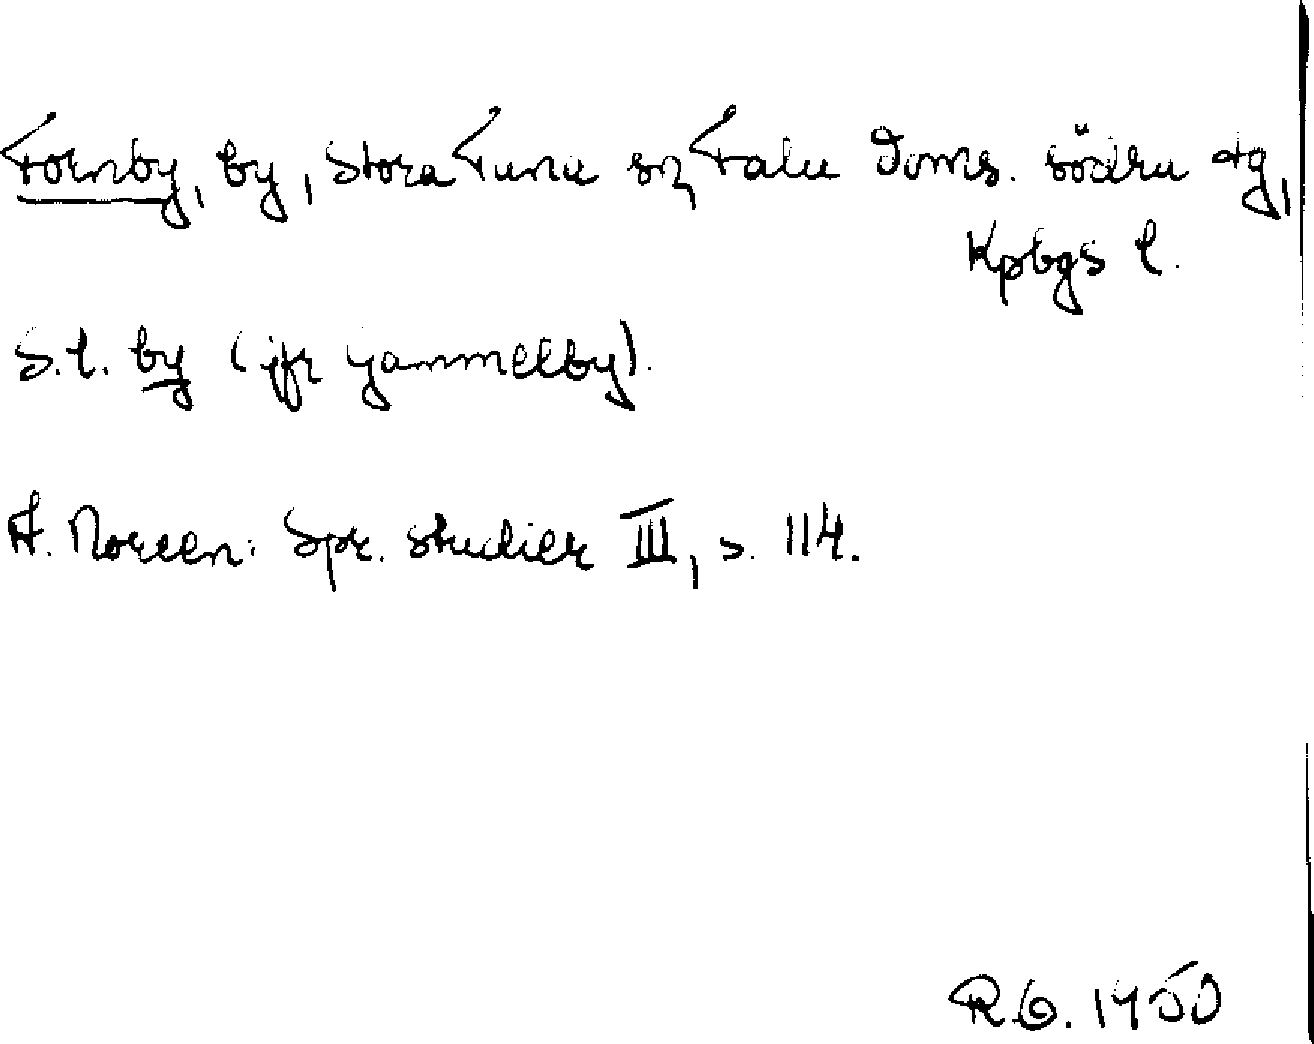 Fornby, by, Stora Tuna sn, Falu Doms. södra tg,
Kpbgs l.
S.l. by (jfr gammelby).
A. Noreen: Spr. studier III, s. 114.
R.G. 1950